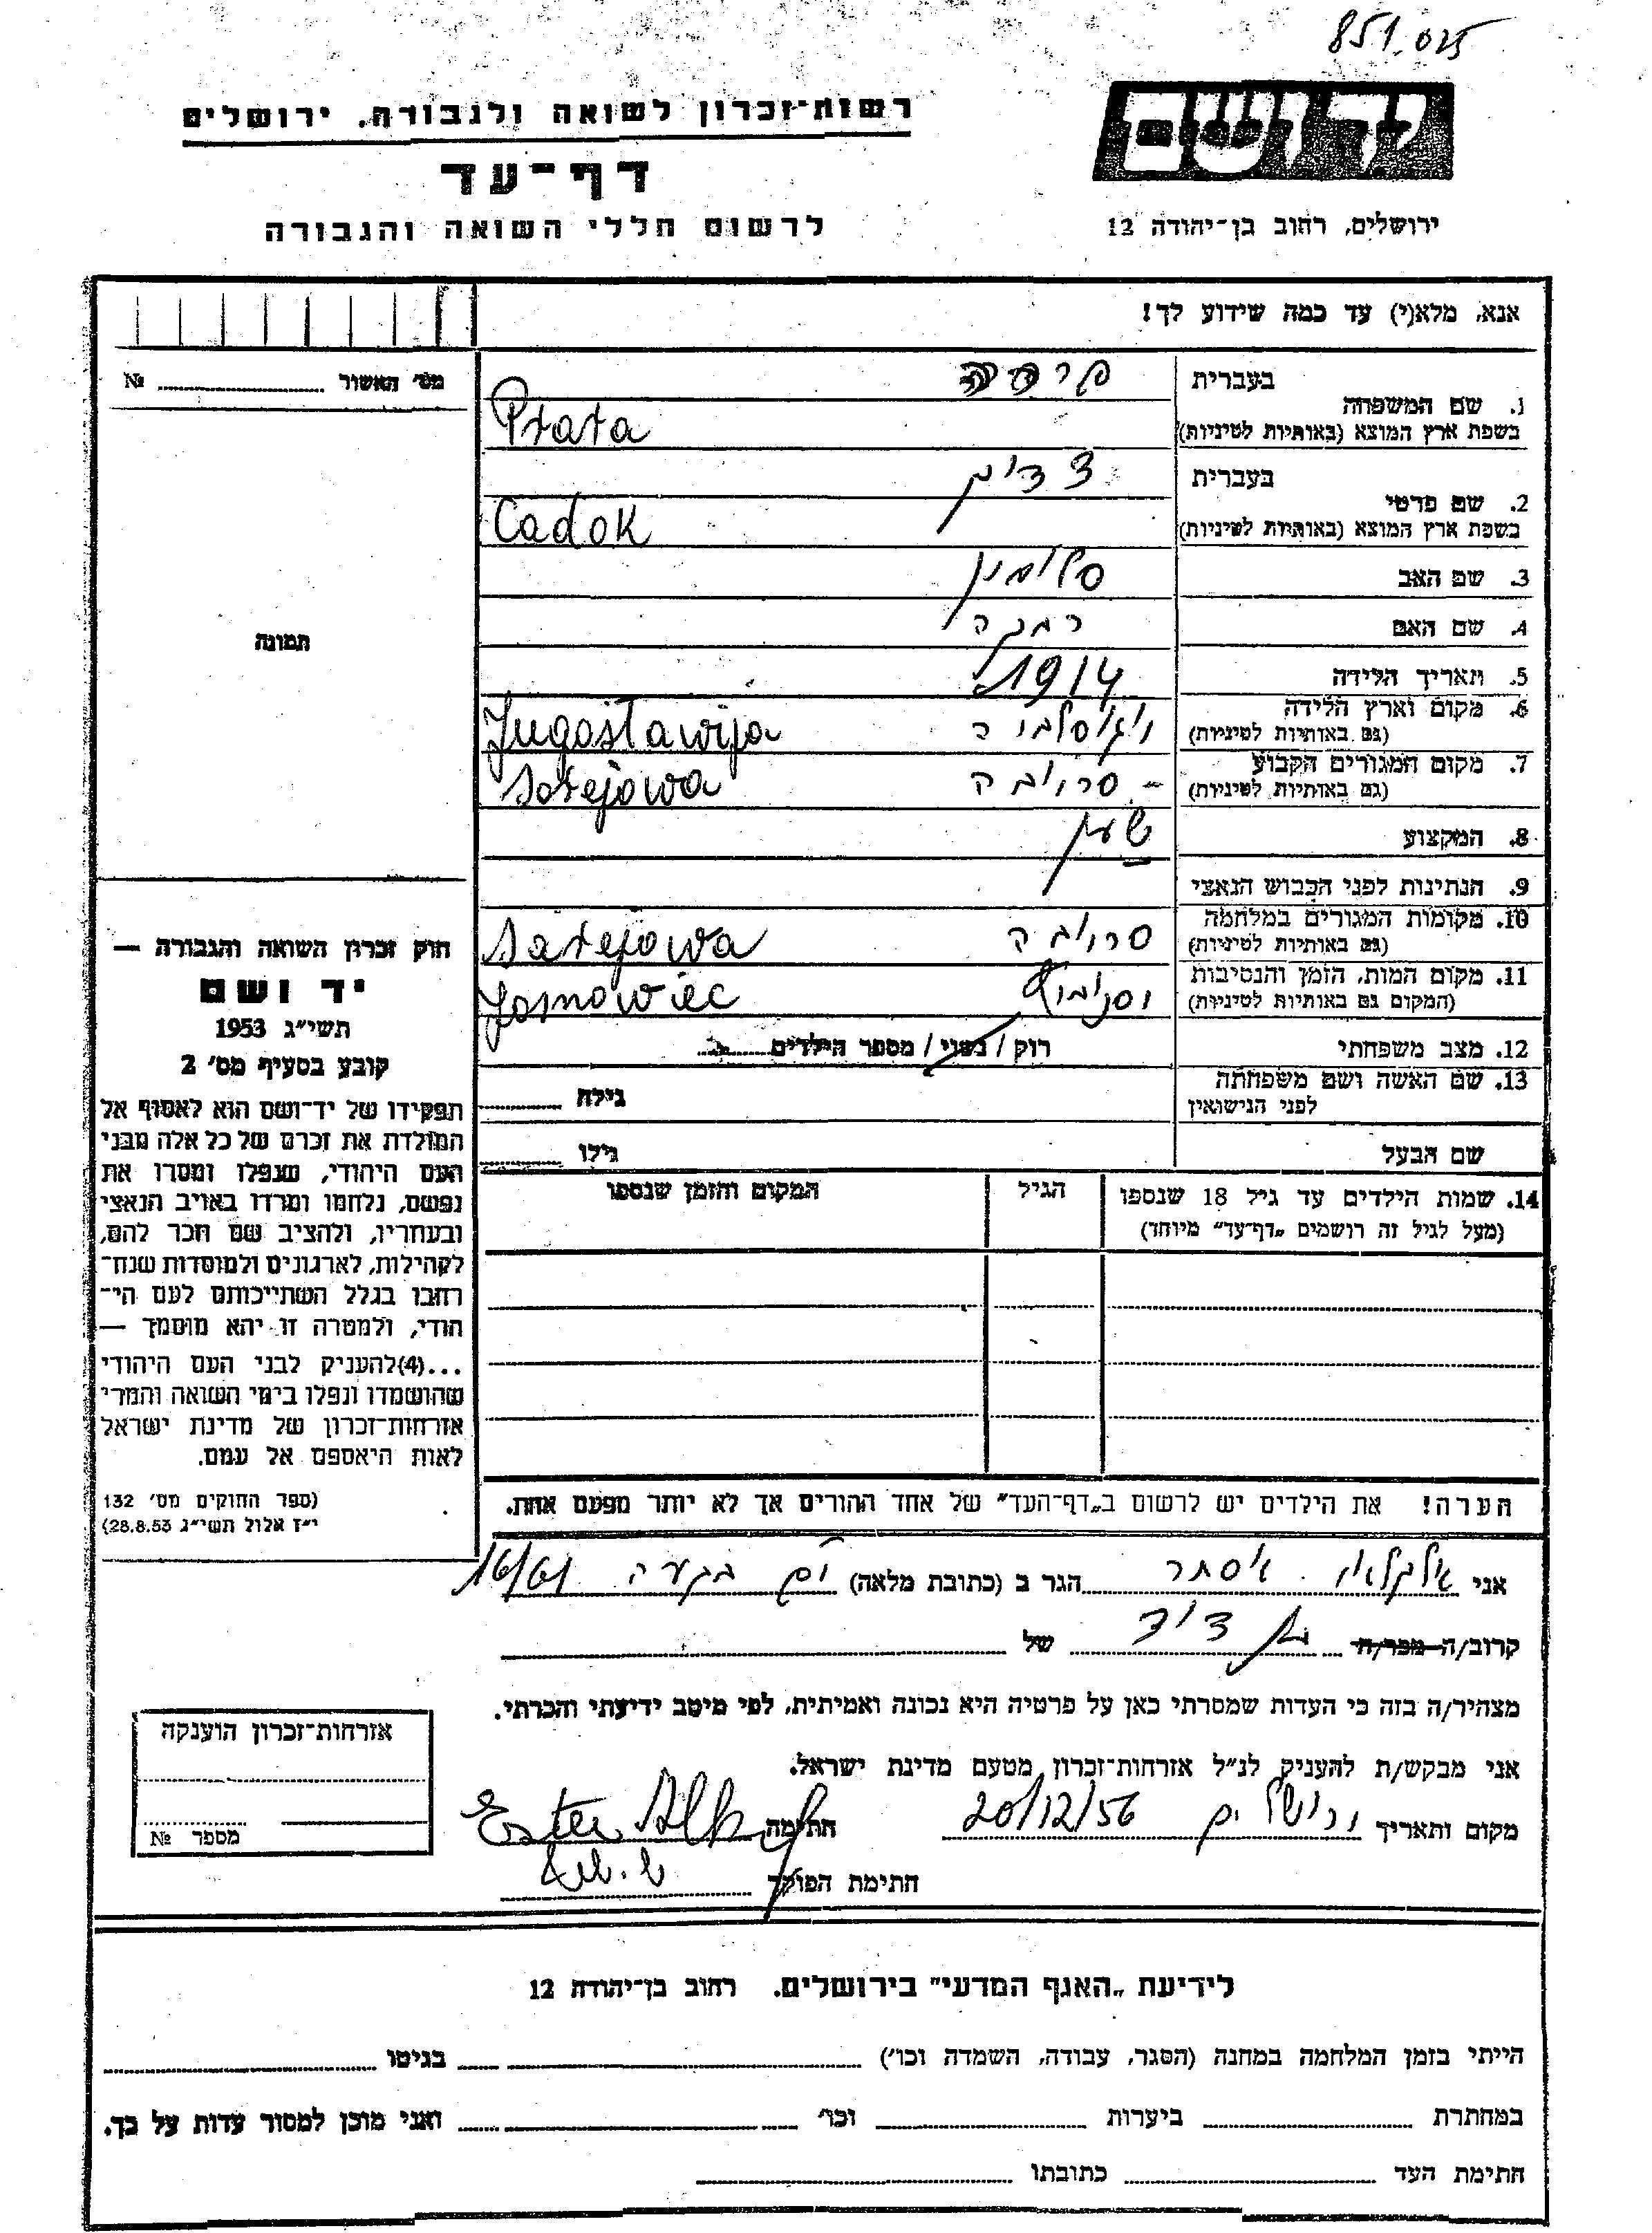 851.025
רשות־זכרון לשואה ולגבורה, ירושלים
דף־עד
לרשום חללי השואה והגבורה
ידושם
ירושלים, רחוב בן־יהודה 12
אנא, מלא(י) עד כמה שידוע לך!
מס׳ האשור № 
1. שם המשפחה
בעברית
בשפת ארץ המוצא (באותיות לטיניות) Prata
2. שם פרטי
בעברית צדיק
בשפת ארץ המוצא (באותיות לטיניות) Cadok
3. שם האב סלומון
4. שם האם רבקה
5. תאריך הלידה 1914
6. מקום וארץ הלידה
(גם באותיות לטיניות) יוגוסלביה Jugoslawija
7. מקום המגורים הקבוע
(גם באותיות לטיניות) סרויבה Sarejowa
8. המקצוע שען
9. הנתינות לפני הכבוש הנאצי
10. מקומות המגורים במלחמה
(גם באותיות לטיניות) סרויבה Sarejowa
11. מקום המות, הזמן והנסיבות
(המקום גם באותיות לטיניות) Jasnowiec
12. מצב משפחתי רוק / נשוי / מספר הילדים
13. שם האשה ושם משפחתה
לפני הנישואין גילה
שם הבעל גילו
14. שמות הילדים עד גיל 18 שנספו הגיל המקום והזמן שנספו
(מעל לגיל זה רושמים „דף־עד״ מיוחד)
תמונה
חוק זכרון השואה והגבורה —
יד ושם
תשי״ג 1953
קובע בסעיף מס׳ 2
תפקידו של יד־ושם הוא לאסוף אל
המולדת את זכרם של כל אלה מבני
העם היהודי, שנפלו ומסרו את
נפשם, נלחמו ומרדו באויב הנאצי
ובעוזריו, ולהציב שם וזכר להם,
לקהילות, לארגונים ולמוסדות שנח־
רבו בגלל השתייכותם לעם הי־
הודי, ולמטרה זו יהא מוסמך —
...(4)להעניק לבני העם היהודי
שהושמדו ונפלו בימי השואה והמרי
אזרחות־זכרון של מדינת ישראל
לאות היאספם אל עמם.
(ספר החוקים מס׳ 132
י״ז אלול תשי״ג 28.8.53)
הערה! את הילדים יש לרשום ב„דף־העד״ של אחד ההורים אך לא יותר מפעם אחת.
אני אלקלאי אסתר הגר ב (כתובת מלאה) 16/61
קרוב/ה מכר/ה בן דוד של
מצהיר/ה בזה כי העדות שמסרתי כאן על פרטיה היא נכונה ואמיתית, לפי מיטב ידיעתי והכרתי.
אני מבקש/ת להעניק לנ״ל אזרחות־זכרון מטעם מדינת ישראל.
מקום ותאריך ירושלים 20/12/56 חתימה Ester
חתימת הפוקד
אזרחות־זכרון הוענקה
מספר №
לידיעת „האגף המדעי״ בירושלים. רחוב בן־יהודה 12
הייתי בזמן המלחמה במחנה (הסגר, עבודה, השמדה וכו׳) בגיטו
במחתרת ביערות וכו׳ ואני מוכן למסור עדות על כך.
חתימת העד כתובתו